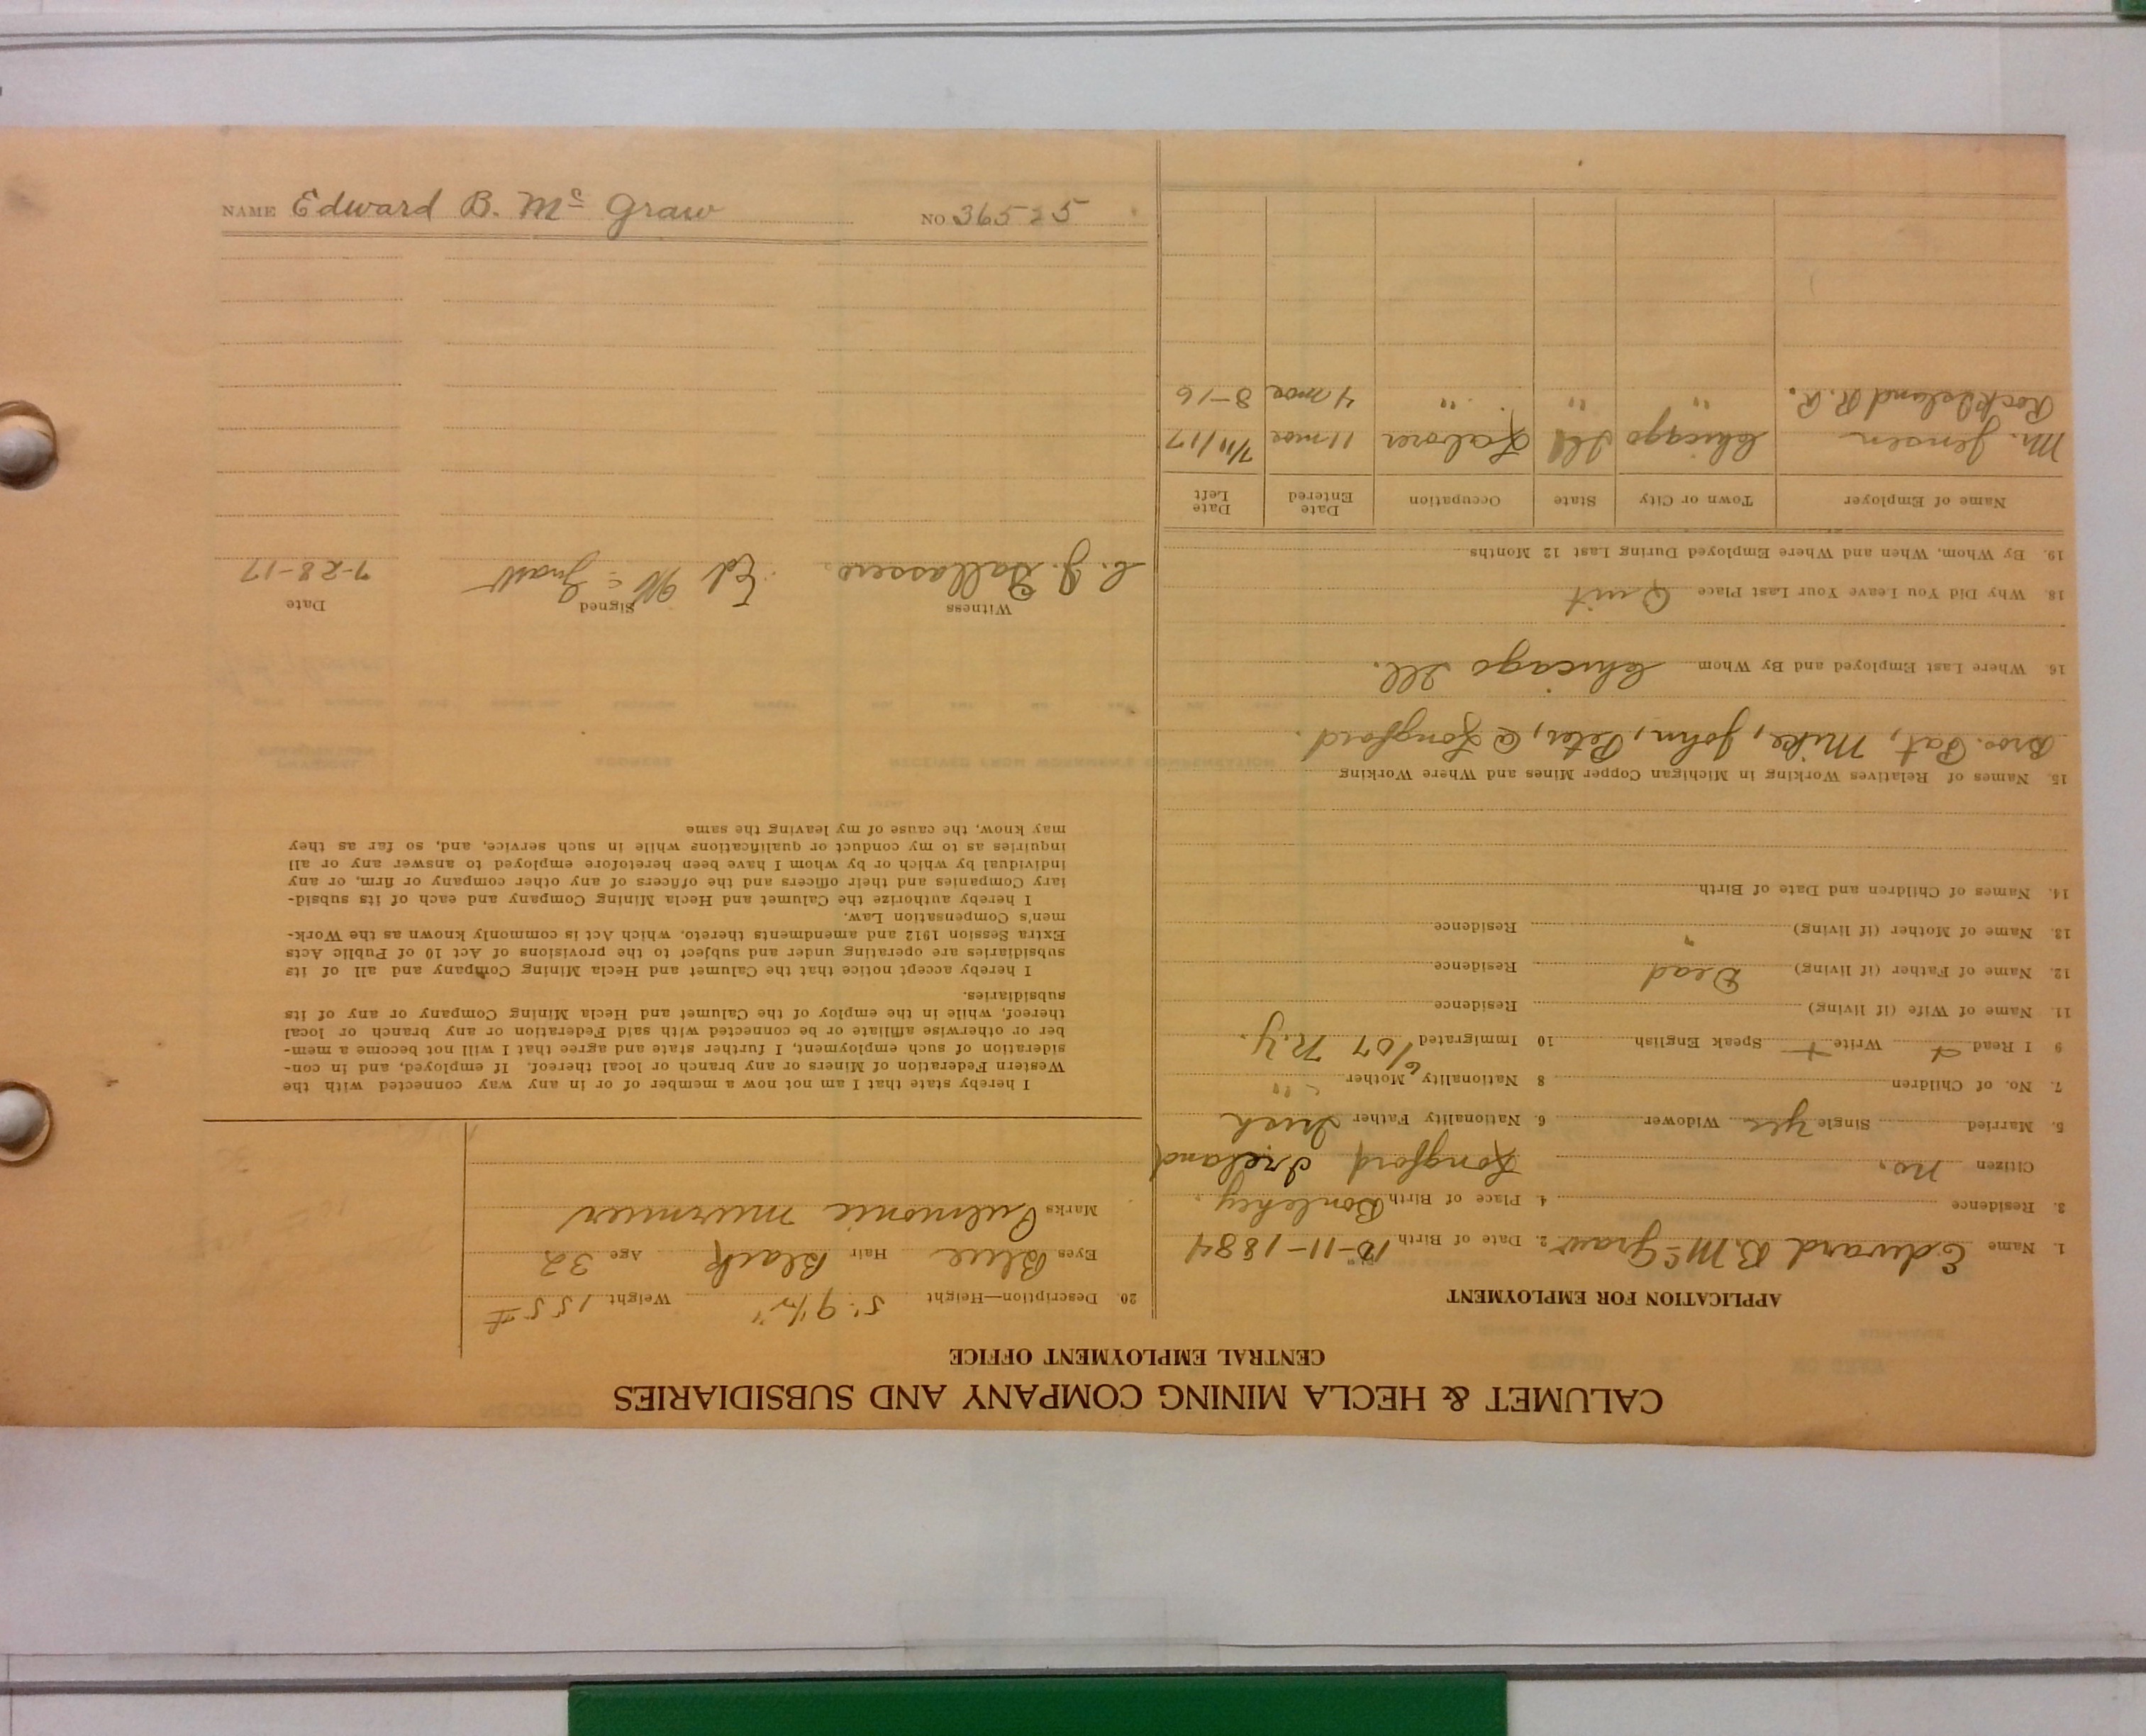 CALUMET & HECLA MINING COMPANY AND SUBSIDIARIES
CENTRAL EMPLOYMENT OFFICE
APPLICATION FOR EMPLOYMENT
1. Name Edward B. McGraw 2. Date of Birth 10-11-1884
3. Residence 4. Place of Birth
Citizen no. Longford Ireland
5. Married Single yes Widower 6. Nationality Father Irish
7. No. of Children 8 Nationality Mother " "
9 I Read + Write + Speak English 10 Immigrated 6/07 N.Y.
11. Name of Wife (if living) Residence
12. Name of Father (if living) Dead Residence
13. Name of Mother (if living) " Residence
14. Names of Children and Date of Birth
15. Names of Relatives Working in Michigan Copper Mines and Where Working
Bros. Pat, Mike, John, Peter, @ Longford.
16. Where Last Employed and By Whom Chicago Ill.
18. Why Did You Leave Your Last Place Quit
19. By Whom, When and Where Employed During Last 12 Months
Name of Employer Town or City State Occupation Date Entered Date Left
Mr. Jensen Chicago Ill Laborer 11 mos 7/11/17
Rock Island R.R. " " " 4 mos 8-16
20. Description—Height 5' 9 1/2" Weight 155 #
Eyes Blue Hair Black Age 32
Marks Pulmonic murmur
I hereby state that I am not now a member of or in any way connected with the
Western Federation of Miners or any branch or local thereof. If employed, and in con-
sideration of such employment, I further state and agree that I will not become a mem-
ber or otherwise affiliate or be connected with said Federation or any branch or local
thereof, while in the employ of the Calumet and Hecla Mining Company or any of its
subsidiaries.
I hereby accept notice that the Calumet and Hecla Mining Company and all of its
subsidiaries are operating under and subject to the provisions of Act 10 of Public Acts
Extra Session 1912 and amendments thereto, which Act is commonly known as the Work-
men's Compensation Law.
I hereby authorize the Calumet and Hecla Mining Company and each of its subsid-
iary Companies and their officers and the officers of any other company or firm, or any
individual by which or by whom I have been heretofore employed to answer any or all
inquiries as to my conduct or qualifications while in such service, and, so far as they
may know, the cause of my leaving the same
Witness Signed Date
Ed McGraw 7-28-17
NAME Edward B. Mc Graw NO 36525